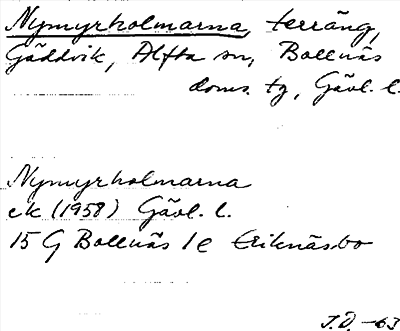 Nymyrholmarna, terräng,
Gäddvik, Alfta sn, Bollnäs
doms. tg, Gävl. l.
Nymyrholmarna
ek (1958) Gävl. l.
15 G Bollnäs 1 e Eriknäsbo
J.D. -63